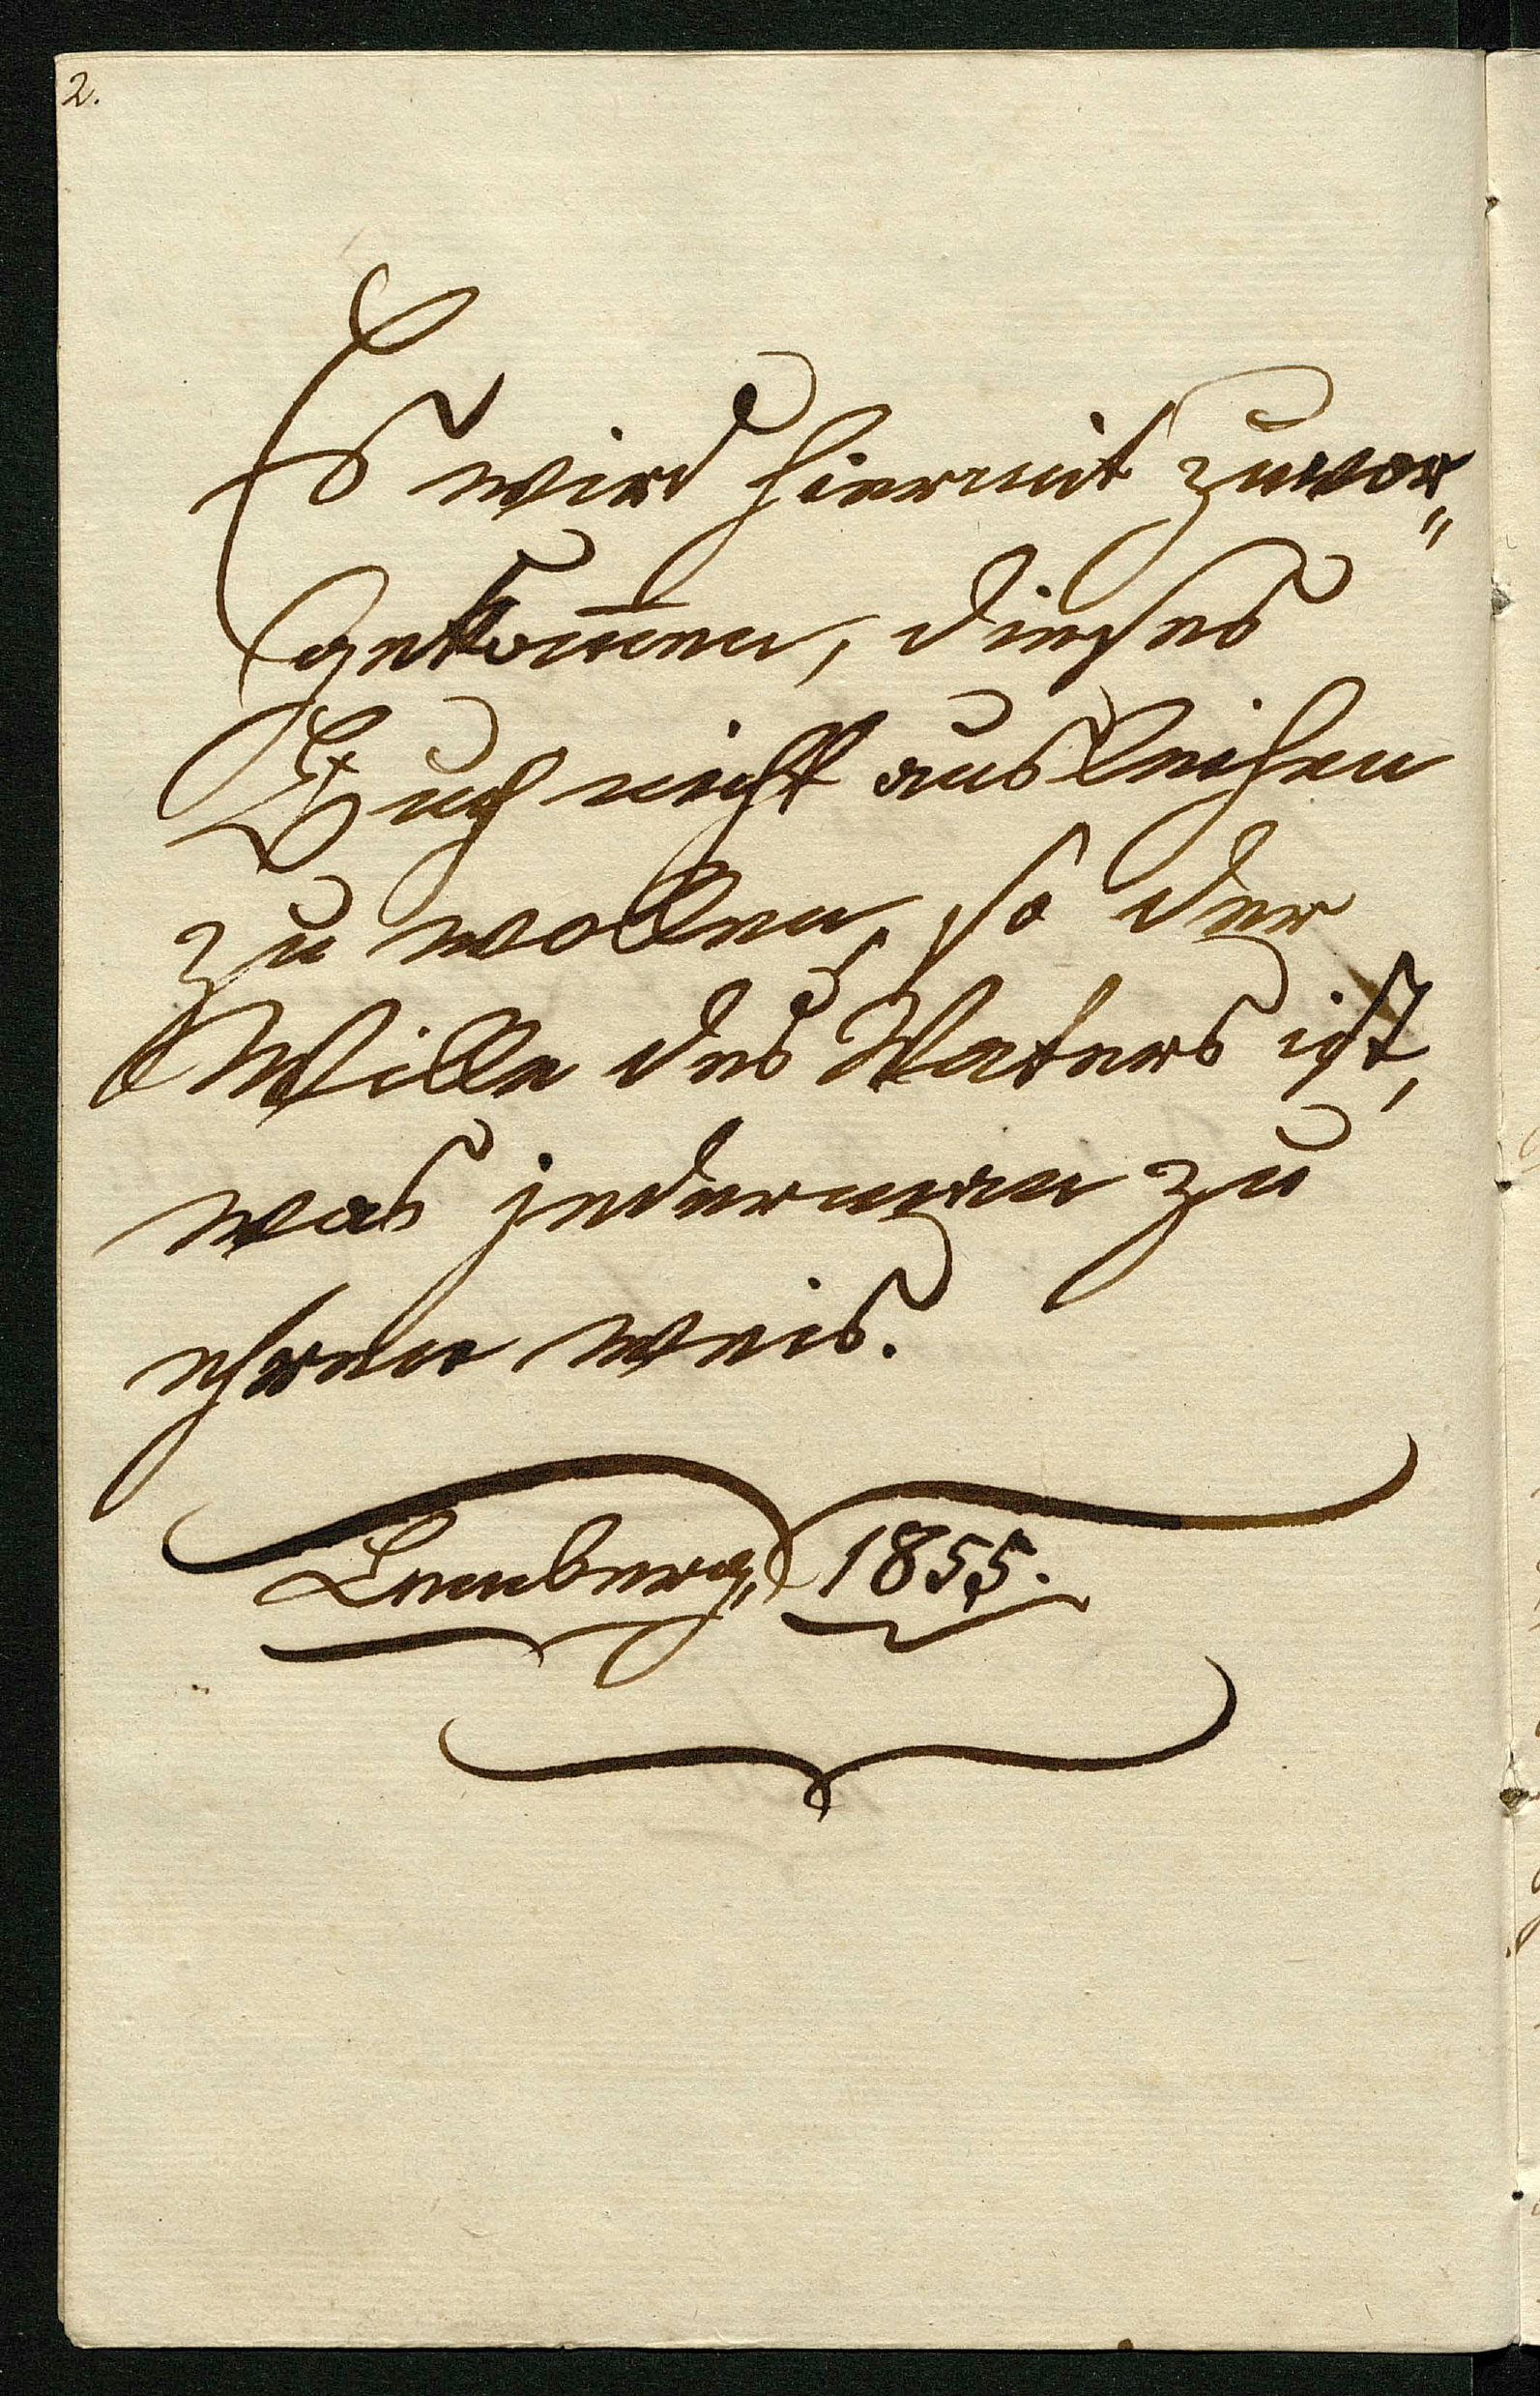 2.
Es wird hiermit zuvor„
gekom̅en, dieses
Buch nicht ausleihen
zu wollen, so der
Wille des Vaters ist,
was jederman zu
ehren weis.
Lemberg, 1855.